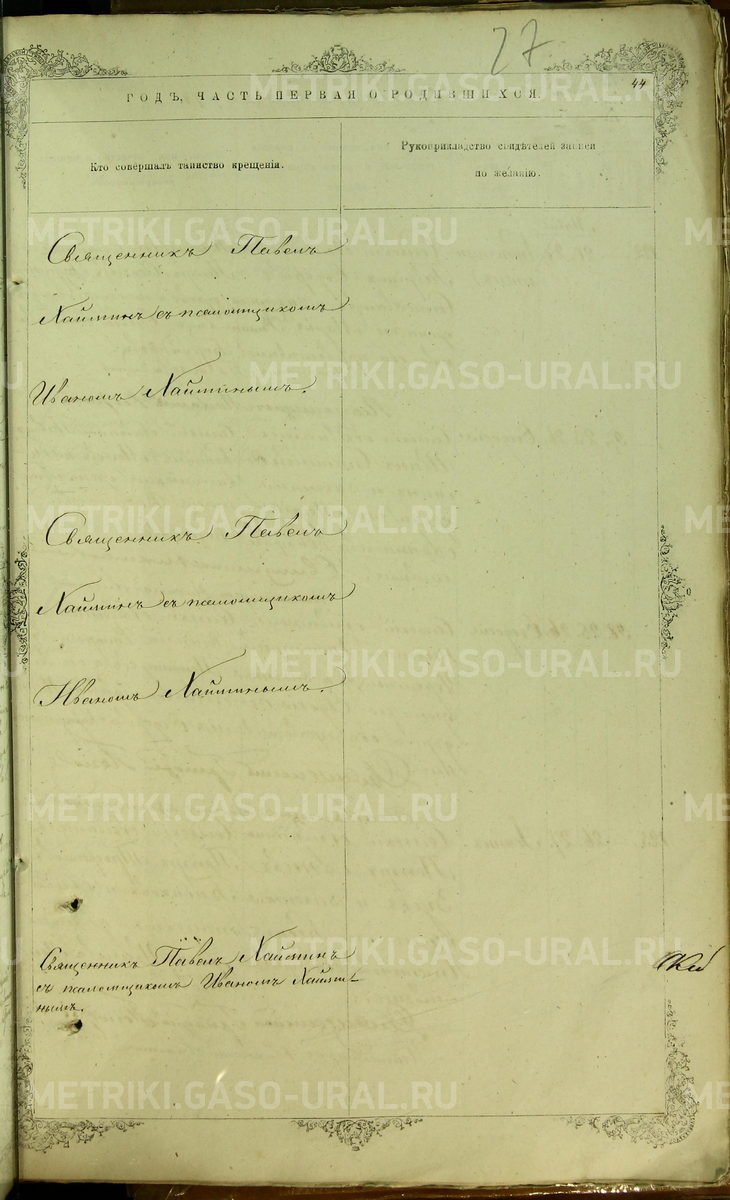 27
44
ГОДЪ, ЧАСТЬ ПЕРВАЯ О РОДИВШИХСЯ.
Кто совершалъ таинство крещенія.
Рукоприкладство свидѣтелей записи
по желанію.
Священникъ Павелъ
съ псаломщикомъ
Иваномъ
Священникъ Павелъ
съ псаломщикомъ
Иваномъ
Священникъ Павелъ
съ псаломщикомъ Иваномъ
METRIKI.GASO-URAL.RU